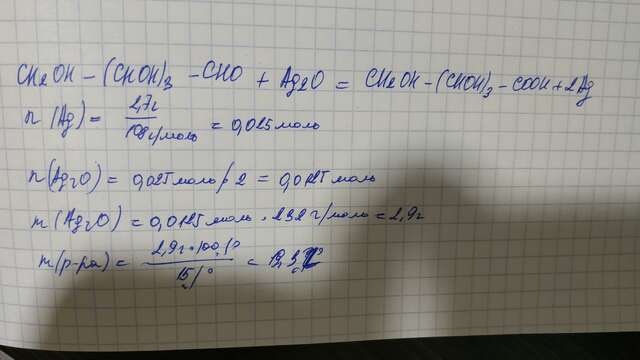 CH2OH – (CHOH)3 – CHO + Ag2O = CH2OH – (CHOH)3 – COOH + 2Ag
n (Ag) = 2,7г / 108 г/моль = 0,025 моль
n(Ag2O) = 0,025 моль / 2 = 0,0125 моль
m (Ag2O) = 0,0125 моль · 232 г/моль = 2,9г
m(р-ра) = 2,9г · 100% / 15% =